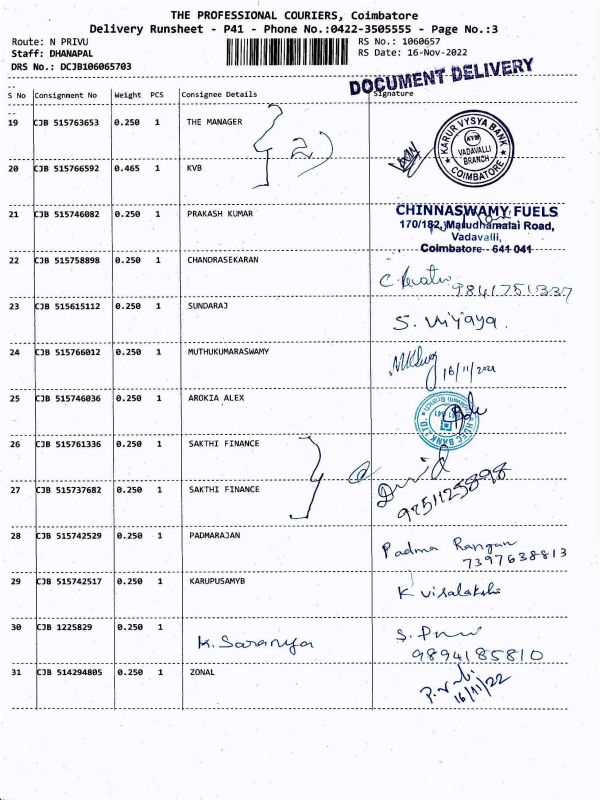 THE PROFESSIONAL COURIERS, Coimbatore
Delivery Runsheet - P41 - Phone No.:0422-3505555 - Page No.:3
Route: N PRIVU
RS No.: 1060657
Staff: DHANAPAL
RS Date: 16-Nov-2022
DRS No.: DCJB106065703
DOCUMENT DELIVERY
S No Consignment No Weight PCS Consignee Details Signature
19 CJB 515763653 0.250 1 THE MANAGER
2)
KARUR VYSYA BANK
KVB
VADAVALLI
BRANCH
COIMBATORE
20 CJB 515766592 0.465 1 KVB
21 CJB 515746082 0.250 1 PRAKASH KUMAR
CHINNASWAMY FUELS
170/182, Marudhamalai Road,
Vadavalli,
Coimbatore - 641 041
22 CJB 515758898 0.250 1 CHANDRASEKARAN
9841751337
23 CJB 515615112 0.250 1 SUNDARAJ
S. Vijaya.
24 CJB 515766012 0.250 1 MUTHUKUMARASWAMY
16/11/2022
25 CJB 515746036 0.250 1 AROKIA ALEX
HDFC BANK LTD
26 CJB 515761336 0.250 1 SAKTHI FINANCE
27 CJB 515737682 0.250 1 SAKTHI FINANCE
9251125898
28 CJB 515742529 0.250 1 PADMARAJAN
Padma Rangan
7397638813
29 CJB 515742517 0.250 1 KARUPUSAMYB
K Visalakshi
30 CJB 1225829 0.250 1 K. Saranya
9894185810
31 CJB 514294805 0.250 1 ZONAL
16/11/22